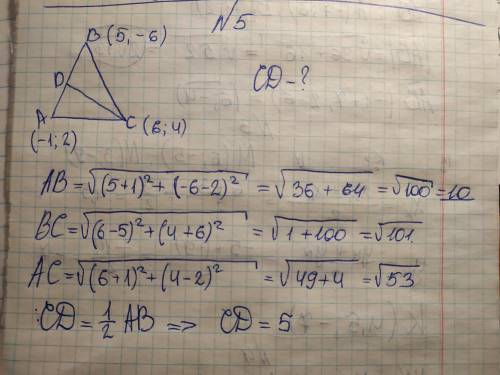 N5
B (5, -6)
D
CD - ?
A
C (6; 4)
(-1; 2)
AB = √(5+1)² + (-6-2)² = √36 + 64 = √100 = 10
BC = √(6-5)² + (4+6)² = √1 + 100 = √101
AC = √(6+1)² + (4-2)² = √49+4 = √53
CD = 1/2 AB => CD = 5